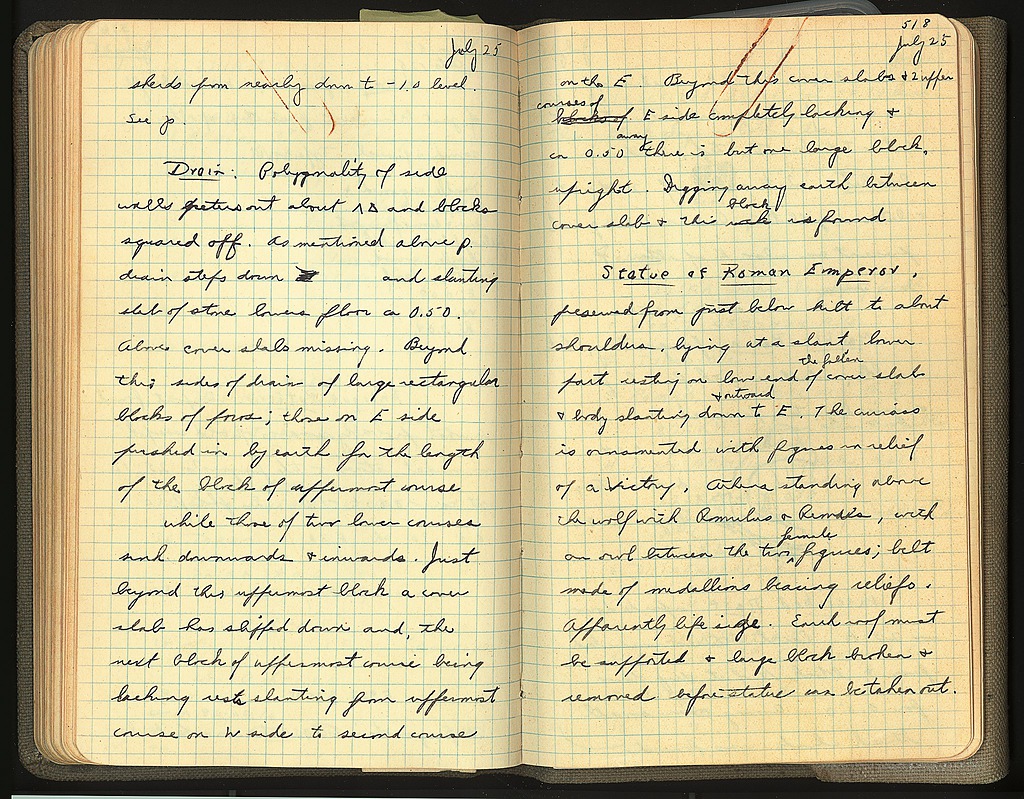 July 25
sherds from nearby down to -1.0 level.
See p.
Drain: Polygonality of side
walls peters out about ΛΔ and blocks
squared off. As mentioned above p.
drain steps down and slanting
slab of stone lowers floor ca 0.50.
Above cover slabs missing. Beyond
this sides of drain of large rectangular
blocks of poros; those on E side
pushed in by earth for the length
of the block of uppermost course
while those of two lower courses
sunk downwards & inwards. Just
beyond this uppermost block a cover
slab has slipped down and, the
next block of uppermost course being
lacking rests slanting from uppermost
course on W side to second course
518
July 25
on the E. Beyond this cover slabs & 2 upper
courses of
blocks of E side completely lacking &
away
ca 0.50 there is but one large block,
upright. Digging away earth between
block
cover slab & this is found
Statue of Roman Emperor,
preserved from just below kilt to about
shoulders, lying at a slant lower
the fallen
part resting on low end of cover slab
& outward
& body slanting down to E. The cuirass
is ornamented with figures in relief
of a Victory, Athena standing above
the wolf with Romulus & Remus, with
female
an owl between the two figures; belt
made of medallions bearing reliefs.
Apparently life size. Earth roof must
be supported & large block broken &
removed before statue can be taken out.